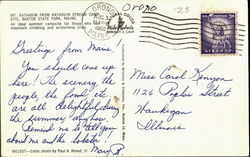 MT. KATAHDIN FROM KATAHDIN STREAM CAMP
SITE, BAXTER STATE PARK, MAINE.
An ideal summer campsite for those who like
mountain climbing and wilderness trips.
ORONO
Orono
Greetings from Maine!
You should come up
here! The scenery, the
people, the food, etc.
are all delightful during
the summer, anyhow.
Remind me to tell you
about me and the lobster!
Mary
Color photo by Paul A. Knaut, Jr.
Miss Carol Kenyon
1126 Poplar Street
Waukegan
Illinois